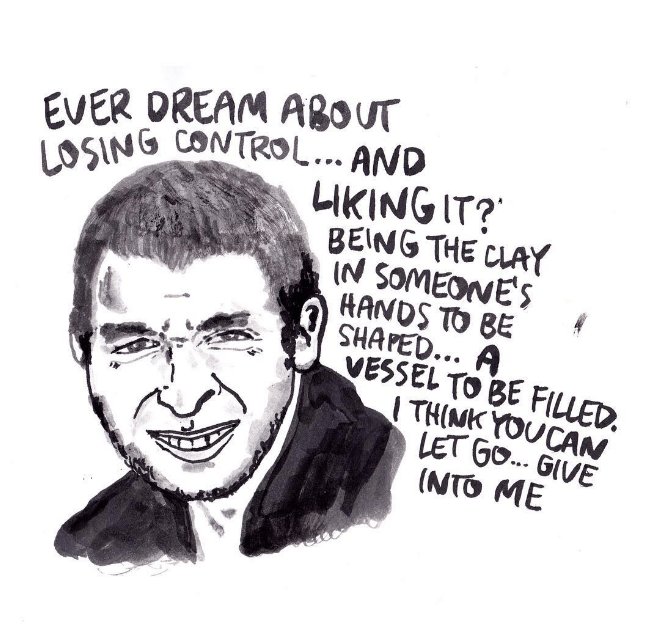 EVER DREAM ABOUT
LOSING CONTROL... AND
LIKING IT?
BEING THE CLAY
IN SOMEONE'S
HANDS TO BE
SHAPED... A
VESSEL TO BE FILLED.
I THINK YOU CAN
LET GO... GIVE
INTO ME